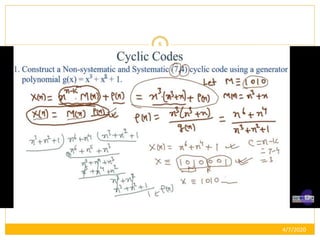 5
Cyclic Codes
1. Construct a Non-systematic and Systematic (7,4) cyclic code using a generator
polynomial g(x) = x³ + x² + 1.
Let M = 1010
X(x) = x^(n-k) M(x) + P(x) = x³(x³+x) + P(x) M(x) = x³+x
X(x) = M(x) P(x) = x³(x³+x) / g(x) = x⁶+x⁴ / x³+x²+1
x³+x²+1) x⁶+x⁴ (x³+x²+1
x⁶+x⁵+x³
x⁵+x⁴+x³
x⁵+x⁴+x²
x³+x²
x³+x²+1
1 ← P(x)
X(x) = x⁶+x⁴+1
C = n-k
= 7-4
= 3
X = 1010001
X = 1010
4/7/2020